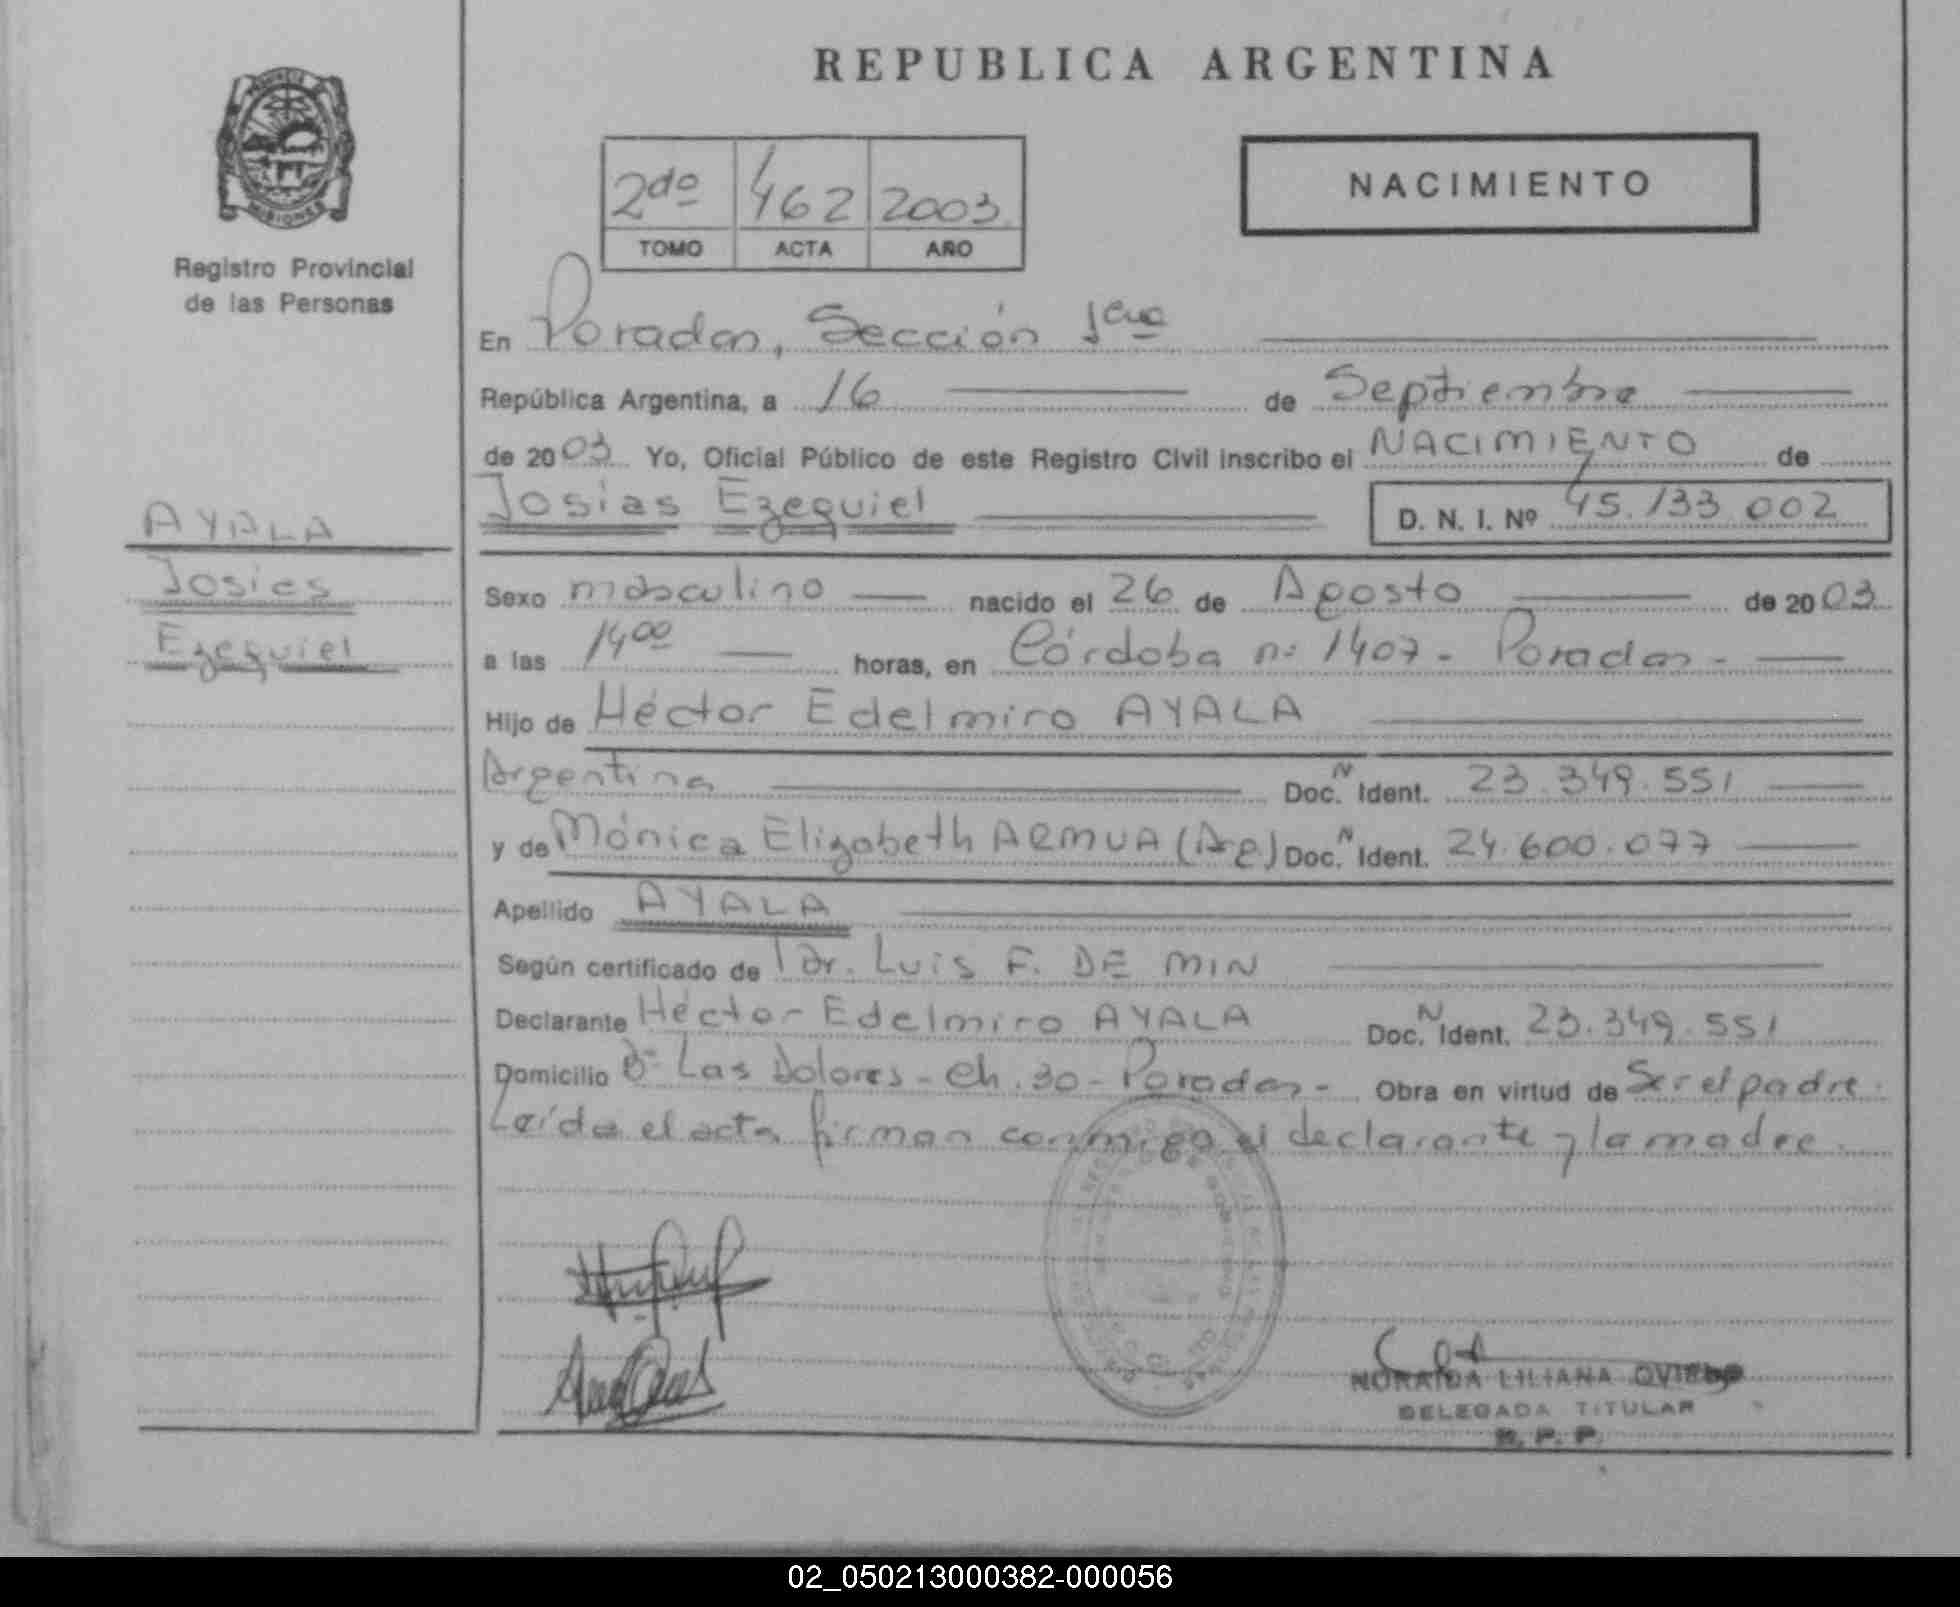 REPUBLICA ARGENTINA
PROVINCIA
MISIONES
Registro Provincial
de las Personas
2do 462 2003
TOMO ACTA AÑO
NACIMIENTO
En Posadas, Sección 1era
República Argentina, a 16 de Septiembre
de 2003 Yo, Oficial Público de este Registro Civil inscribo el NACIMIENTO de
Josías Ezequiel D. N. I. Nº 45.133.002
AYALA
Josías
Ezequiel
Sexo masculino nacido el 26 de Agosto de 2003
a las 14 00 horas, en Córdoba nº 1407 - Posadas -
Hijo de Héctor Edelmiro AYALA
Argentina Doc. N Ident. 23.349.551
y de Mónica Elizabeth ARMUA (Arg) Doc. N Ident. 24.600.077
Apellido AYALA
Según certificado de Dr. Luis F. DE MIN
Declarante Héctor Edelmiro AYALA Doc. N Ident. 23.349.551
Domicilio Bº Las Dolores - Ch. 30 - Posadas - Obra en virtud de Ser el padre.
Leída el acta firman conmigo el declarante y la madre.
NORAIDA LILIANA OVIEDO
DELEGADA TITULAR
R. P. P.
02_050213000382-000056